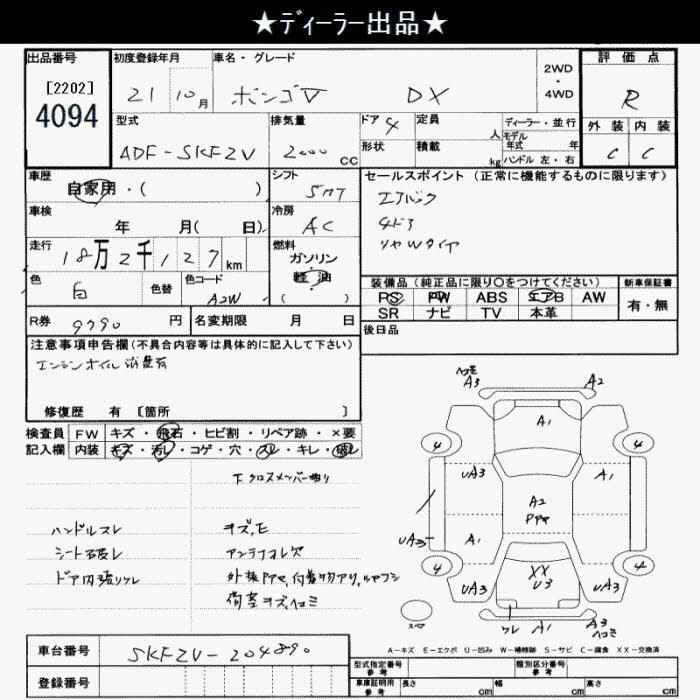 ★ディーラー出品★
出品番号 初度登録年月 車名・グレード 2WD・4WD 評価点
[2202]
4094
21 10月 ボンゴV DX R
型式 排気量 ドア 4 定員 人 ディーラー・並行 外装 内装
モデル年式 年
ADF-SKF2V 2000 CC 形状 積載 kg ハンドル 左・右 C C
車歴 シフト セールスポイント (正常に機能するものに限ります)
自家用・( ) 5MT エアバック
車検 冷房 4ドア
年 月( 日) AC リヤWタイヤ
走行 燃料
18万2千127km ガソリン
軽油
( )
色 色替 色コード 装備品 (純正品に限り○をつけてください) 新車保証書
白 A2W PS PW ABS エアB AW 有・無
SR ナビ TV 本革
R券 9790 円 名変期限 月 日 後日品
注意事項申告欄 (不具合内容等は具体的に記入して下さい)
エンジンオイル消費有
修復歴 有 [箇所 ]
検査員 FW キズ・飛石・ヒビ割・リペア跡・×要
記入欄 内装 キズ・汚レ・コゲ・穴・スレ・キレ・破レ
下クロスメンバー曲り
ハンドルスレ キズ,E
シート破レ アンテナコレズ
ドア内張リワレ
荷室キズ,ヘコミ
ヘコミ
A3 A2
A1
4 4
UA3 A1
A2
UA3 A1
4 4
XX
U3
UA3 UA3
スペア ワレ A1 A3
ヘコミ
A-キズ E-エクボ U-凹み W-補修跡 S-サビ C-腐食 XX-交換済
車台番号 SKF2V-204890
型式指定番号 参考 類別区分番号 参考
登録番号 車庫証明用 参考 長さ cm 幅 cm 高さ cm